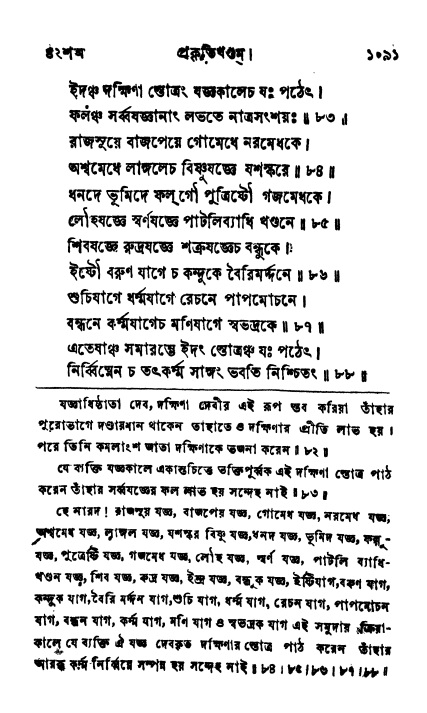 ৪২শঅ প্রকৃতিখণ্ডম্। ১০৯১
ইদঞ্চ দক্ষিণা স্তোত্রং যজ্ঞকালেচ যঃ পঠেৎ।
ফলঞ্চ সর্ব্বযজ্ঞানাং লভতে নাত্রসংশয়ঃ॥ ৮৩॥
রাজসূয়ে বাজপেয়ে গোমেধে নরমেধকে।
অশ্বমেধে লাঙ্গলেচ বিষ্ণুযজ্ঞে যশস্করে॥ ৮৪॥
ধনদে ভূমিদে ফল্গৌ পুত্রিষ্টৌ গজমেধকে।
লৌহযজ্ঞে স্বর্ণযজ্ঞে পাটলিব্যাধি খণ্ডনে॥ ৮৫॥
শিবযজ্ঞে রুদ্রযজ্ঞে শক্রযজ্ঞেচ বন্ধুকে।
ইষ্টৌ বরুণ যাগে চ কন্দুকে বৈরিমর্দ্দনে॥ ৮৬॥
শুচিযাগে ধর্ম্মযাগে রেচনে পাপমোচনে।
বন্ধনে কর্ম্মযাগেচ মণিযাগে স্বভদ্রকে॥ ৮৭॥
এতেষাঞ্চ সমারম্ভে ইদং স্তোত্রঞ্চ যঃ পঠেৎ।
নির্ব্বিঘ্নেন চ তৎকর্ম্ম সাঙ্গং ভবতি নিশ্চিতং॥ ৮৮॥
যজ্ঞাধিষ্ঠাতা দেব, দক্ষিণা দেবীর এই রূপ স্তব করিয়া তাঁহার
পুরোভাগে দণ্ডায়মান থাকেন তাহাতে ও দক্ষিণার প্রীতি লাভ হয়।
পরে তিনি কমলাংশ জাতা দক্ষিণাকে ভজনা করেন॥ ৮২॥
যে ব্যক্তি যজ্ঞকালে একাগ্রচিত্তে ভক্তিপূর্ব্বক এই দক্ষিণা স্তোত্র পাঠ
করেন তাঁহার সর্ব্বযজ্ঞের ফল লাভ হয় সন্দেহ নাই॥ ৮৩॥
হে নারদ! রাজসূয় যজ্ঞ, বাজপেয় যজ্ঞ, গোমেধ যজ্ঞ, নরমেধ যজ্ঞ,
অশ্বমেধ যজ্ঞ, লাঙ্গল যজ্ঞ, যশস্কর বিষ্ণু যজ্ঞ, ধনদ যজ্ঞ, ভূমিদ যজ্ঞ, ফল্গু-
যজ্ঞ, পুত্রেষ্টি যজ্ঞ, গজমেধ যজ্ঞ, লৌহ যজ্ঞ, স্বর্ণ যজ্ঞ, পাটলি ব্যাধি-
খণ্ডন যজ্ঞ, শিব যজ্ঞ, রুদ্র যজ্ঞ, ইন্দ্র যজ্ঞ, বন্ধুক যজ্ঞ, ইষ্টিযাগ, বরুণ যাগ,
কন্দুক যাগ, বৈরি মর্দ্দন যাগ, শুচি যাগ, ধর্ম্ম যাগ, রেচন যাগ, পাপমোচন
যাগ, বন্ধন যাগ, কর্ম্ম যাগ, মণি যাগ ও স্বভদ্রক যাগ এই সমুদায় ক্রিয়া-
কালে যে ব্যক্তি ঐ যজ্ঞ দেবকৃত দক্ষিণার স্তোত্র পাঠ করেন তাঁহার
আরব্ধ কর্ম্ম নির্ব্বিঘ্নে সম্পন্ন হয় সন্দেহ নাই॥ ৮৪। ৮৫। ৮৬। ৮৭। ৮৮॥